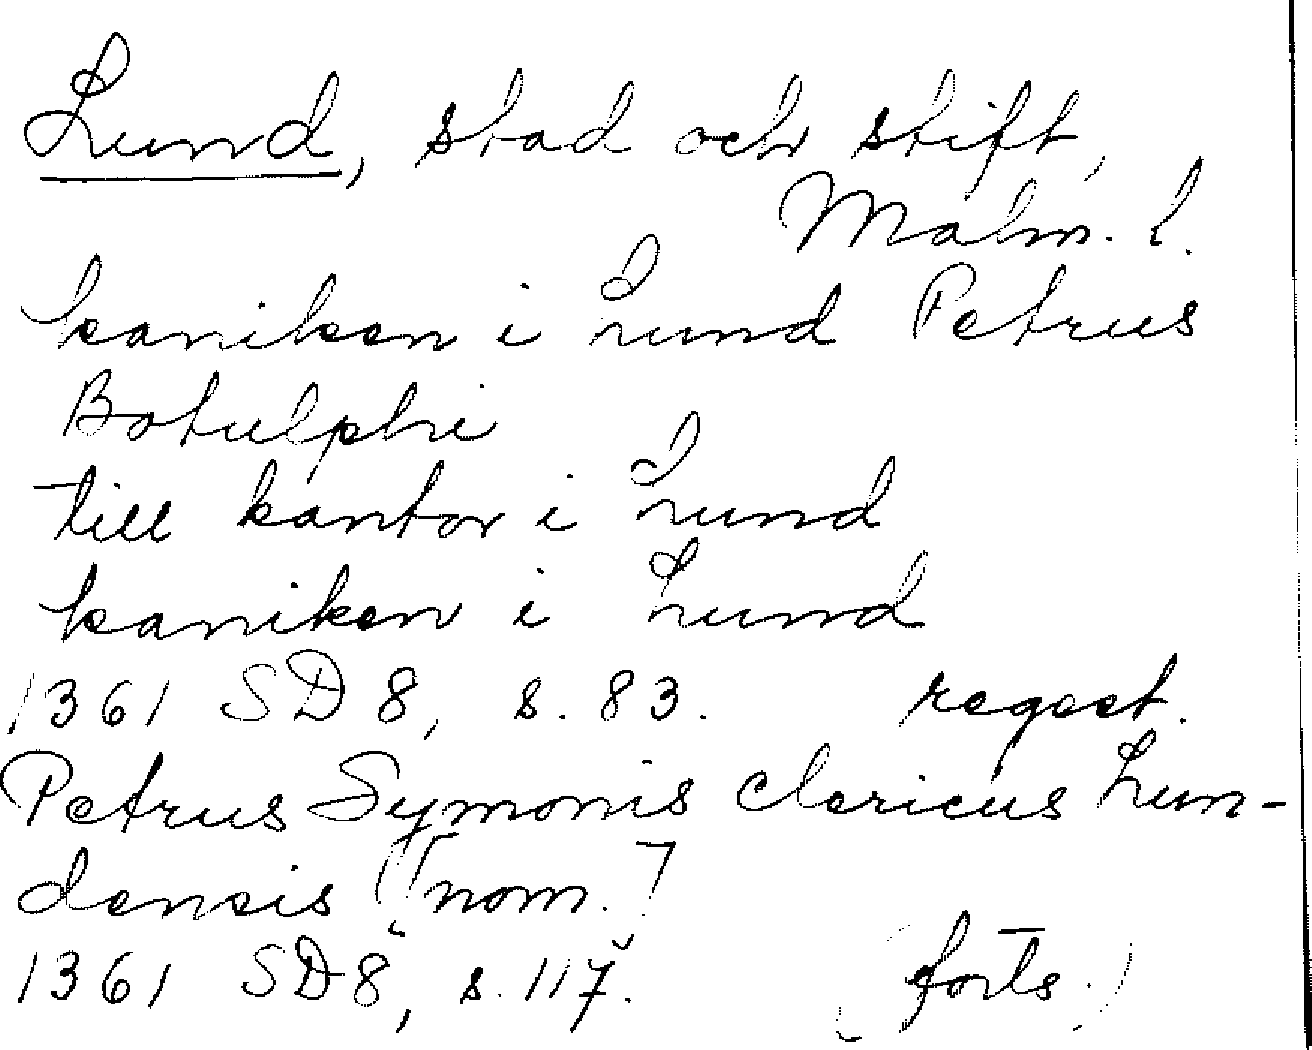 Lund, stad och stift,
Malm. l.
kaniken i Lund Petrus
Botulphi
till kantor i Lund
kaniken i Lund
1361 SD 8, s. 83. regest.
Petrus Symonis clericus Lun-
densis [nom.]
1361 SD 8, s. 117. (forts.)